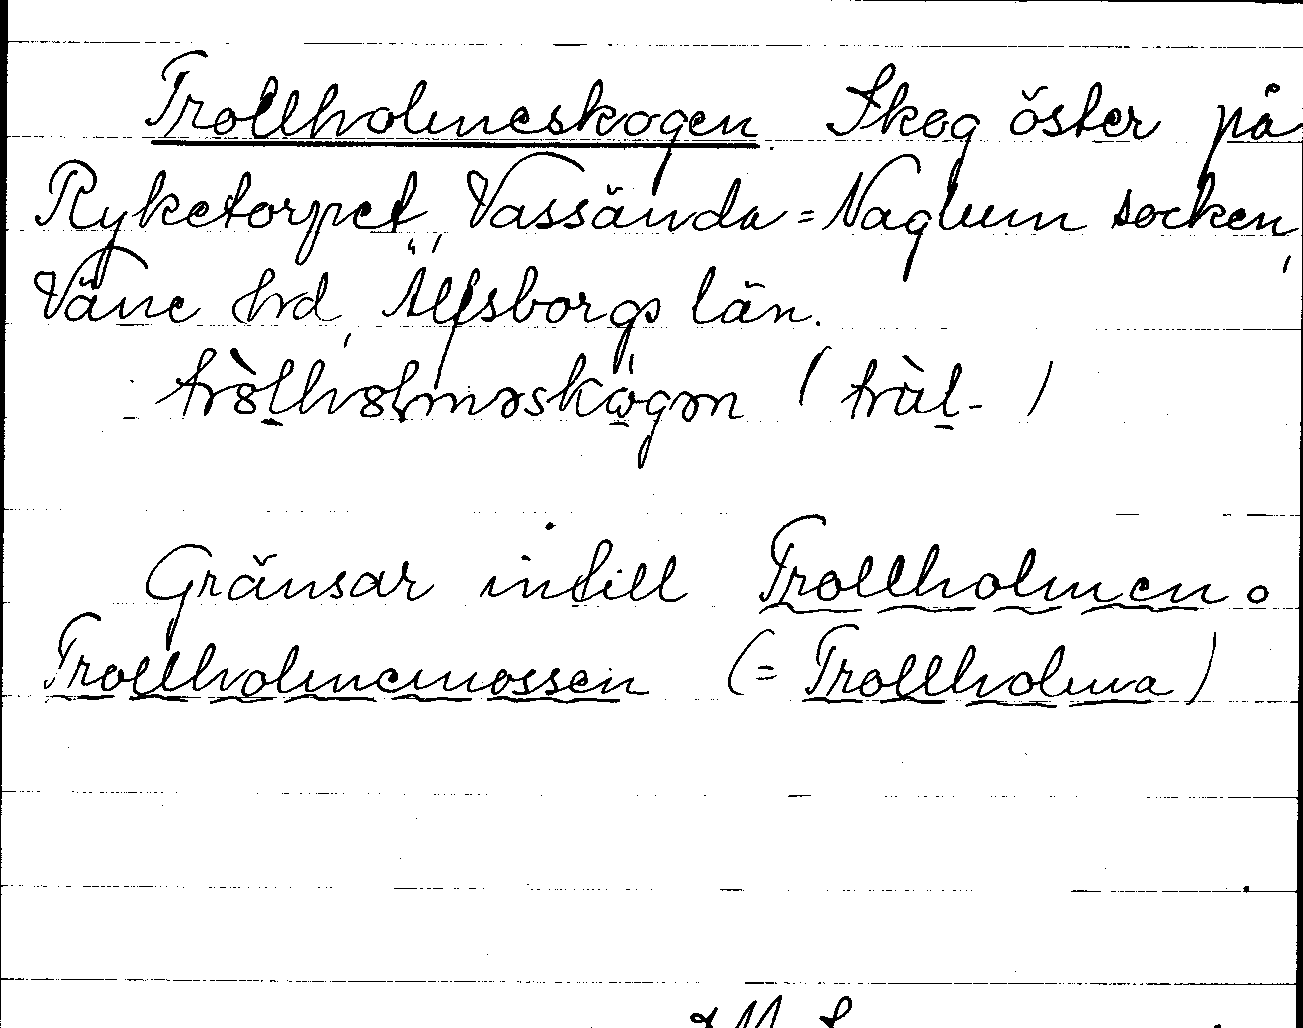 Trollholmeskogen Skog öster på
Ryketorpet, Vassända=Naglum socken,
Väne hrd, Älfsborgs län.
tròlholmǝskógǝn (tròl-)
Gränsar intill Trollholmen o
Trollholmemossen (= Trollholma)